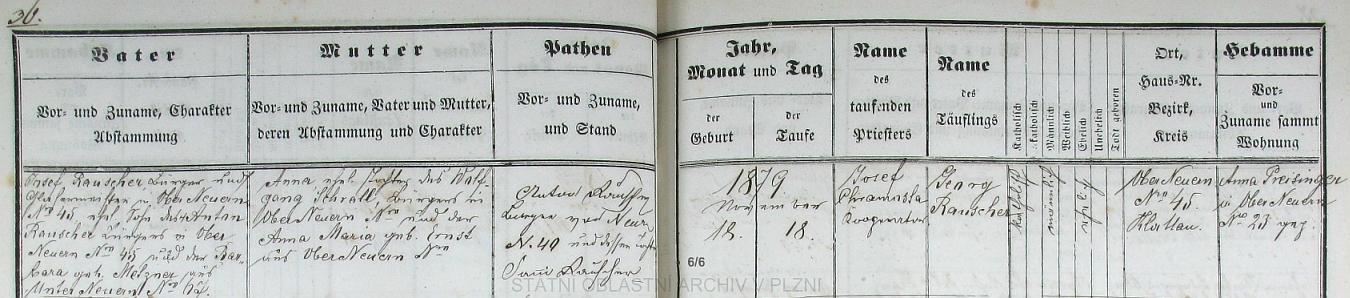 36.
Vater
Vor- und Zuname, Charakter
Abstammung
Mutter
Vor- und Zuname, Vater und Mutter,
deren Abstammung und Charakter
Pathen
Vor- und Zuname,
und Stand
Jahr,
Monat und Tag
der
Geburt
der
Taufe
Name
des
taufenden
Priesters
Name
des
Täuflings
Katholisch
Männlich
Weiblich
Ehelich
Unehelich
Todt geboren
Ort,
Haus-Nr.
Bezirk,
Kreis
Hebamme
Vor-
und
Zuname sammt
Wohnung
Josef Rauscher Bürger und
Glasermeister v. Ober Neuern
No 45, ehel. Sohn des Anton
Rauscher Bürgers in Ober
Neuern No 45 und der Bar-
bara geb. Metzner aus
Unter Neuern No
Anna ehel. Tochter des Wolf-
gang Schrall, Bürgers in
Ober Neuern No und der
Anna Maria geb. Ernst
aus Ober Neuern No
Anton Rauscher
Bürger von Neuern
N. 40 und dessen
Rauscher
1879
November
18.
18.
Josef
Kooperator
Georg
Rauscher
katholisch
männlich
ehelich
Ober Neuern
No 45.
Klattau.
Anna Preisinger
in Ober Neuern
No 23 gez.
6/6
STÁTNÍ OBLASTNÍ ARCHIV V PLZNI